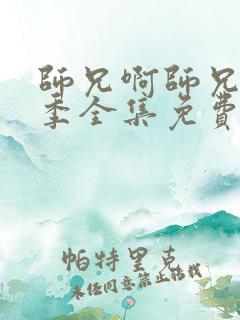 師兄啊師兄
季全集免費
帕特里克
未经同意禁止转载